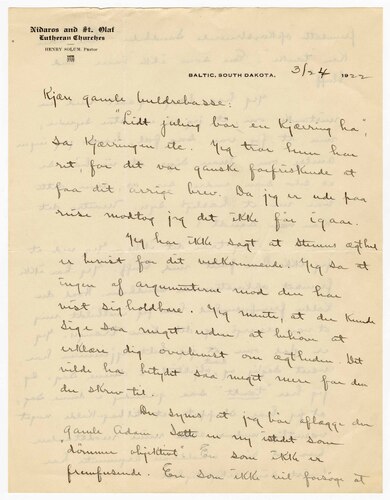 Nidaros and St. Olaf
Lutheran Churches
HENRY SOLUM, Pastor
BALTIC, SOUTH DAKOTA, 3/24 1922
Kjære gamle buldrebasse:
"Lidt juling bør en Kjæring ha",
sa Kjærringen etc. Jeg tror hun har
ret, for det var ganske forfriskende at
faa dit arrige brev. Da jeg er ude paa
reise modtog jeg det ikke før igaar.
Jeg har ikke sagt at stenens ægthed
er bevist for det vedkommende. Jeg sa at
ingen af argumenterne mod den har
vist sig holdbare. Jeg mente, at du kunde
sige saa meget uden at behøve at
erklære dig overbevist om ægtheden. Det
vilde ha betydt saa meget mere for den
du skrev til.
Du synes at jeg bør aflægge den
gamle Adam. Sætte en ny istedet som
"dömmer objektivt". En som ikke er
fremfusende. En som ikke vil forsøge at